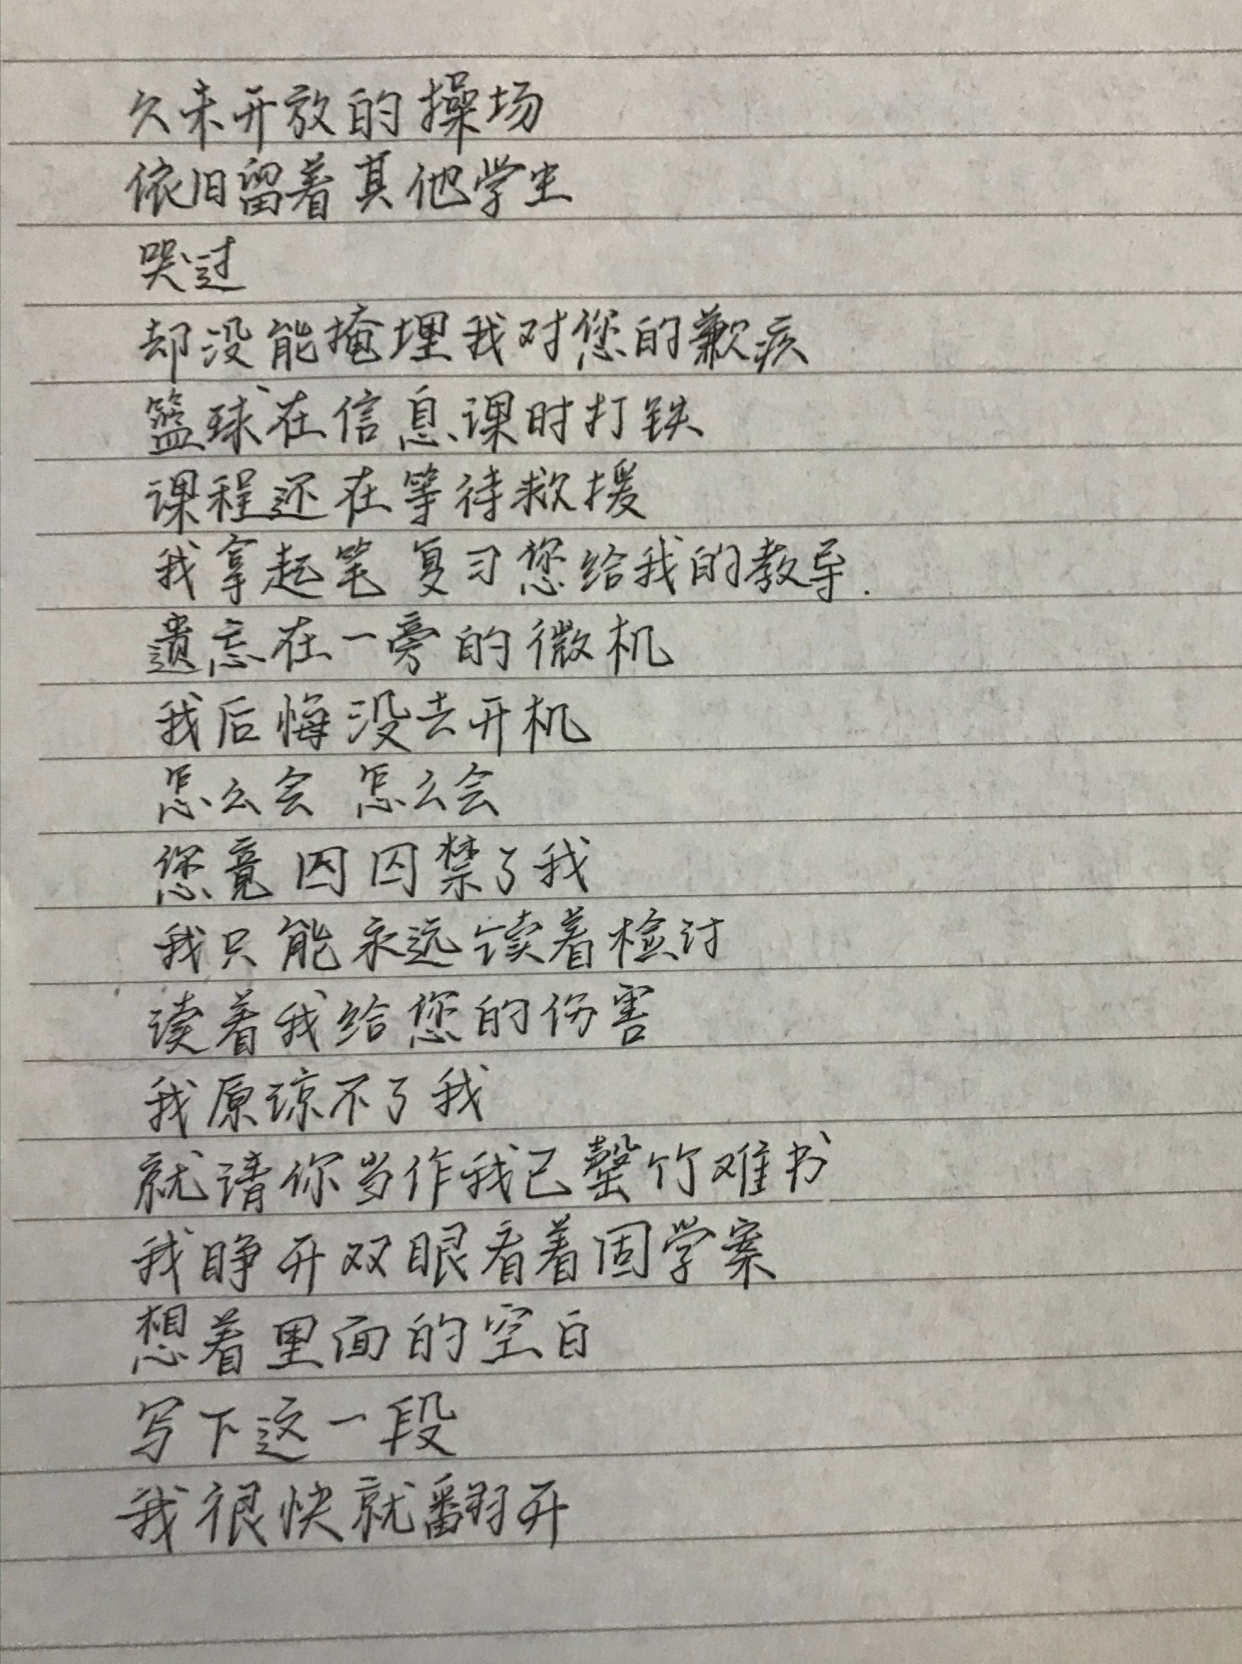 久未开放的操场
依旧留着其他学生
哭过
却没能掩埋我对您的歉疚
篮球在信息课时打铁
课程还在等待救援
我拿起笔 复习您给我的教导.
遗忘在一旁的微机
我后悔没去开机
怎么会 怎么会
您竟囚囚禁了我
我只能永远读着检讨
读着我给您的伤害
我原谅不了我
就请你当作我已罄竹难书
我睁开双眼看着固学案
想着里面的空白
写下这一段
我很快就翻开